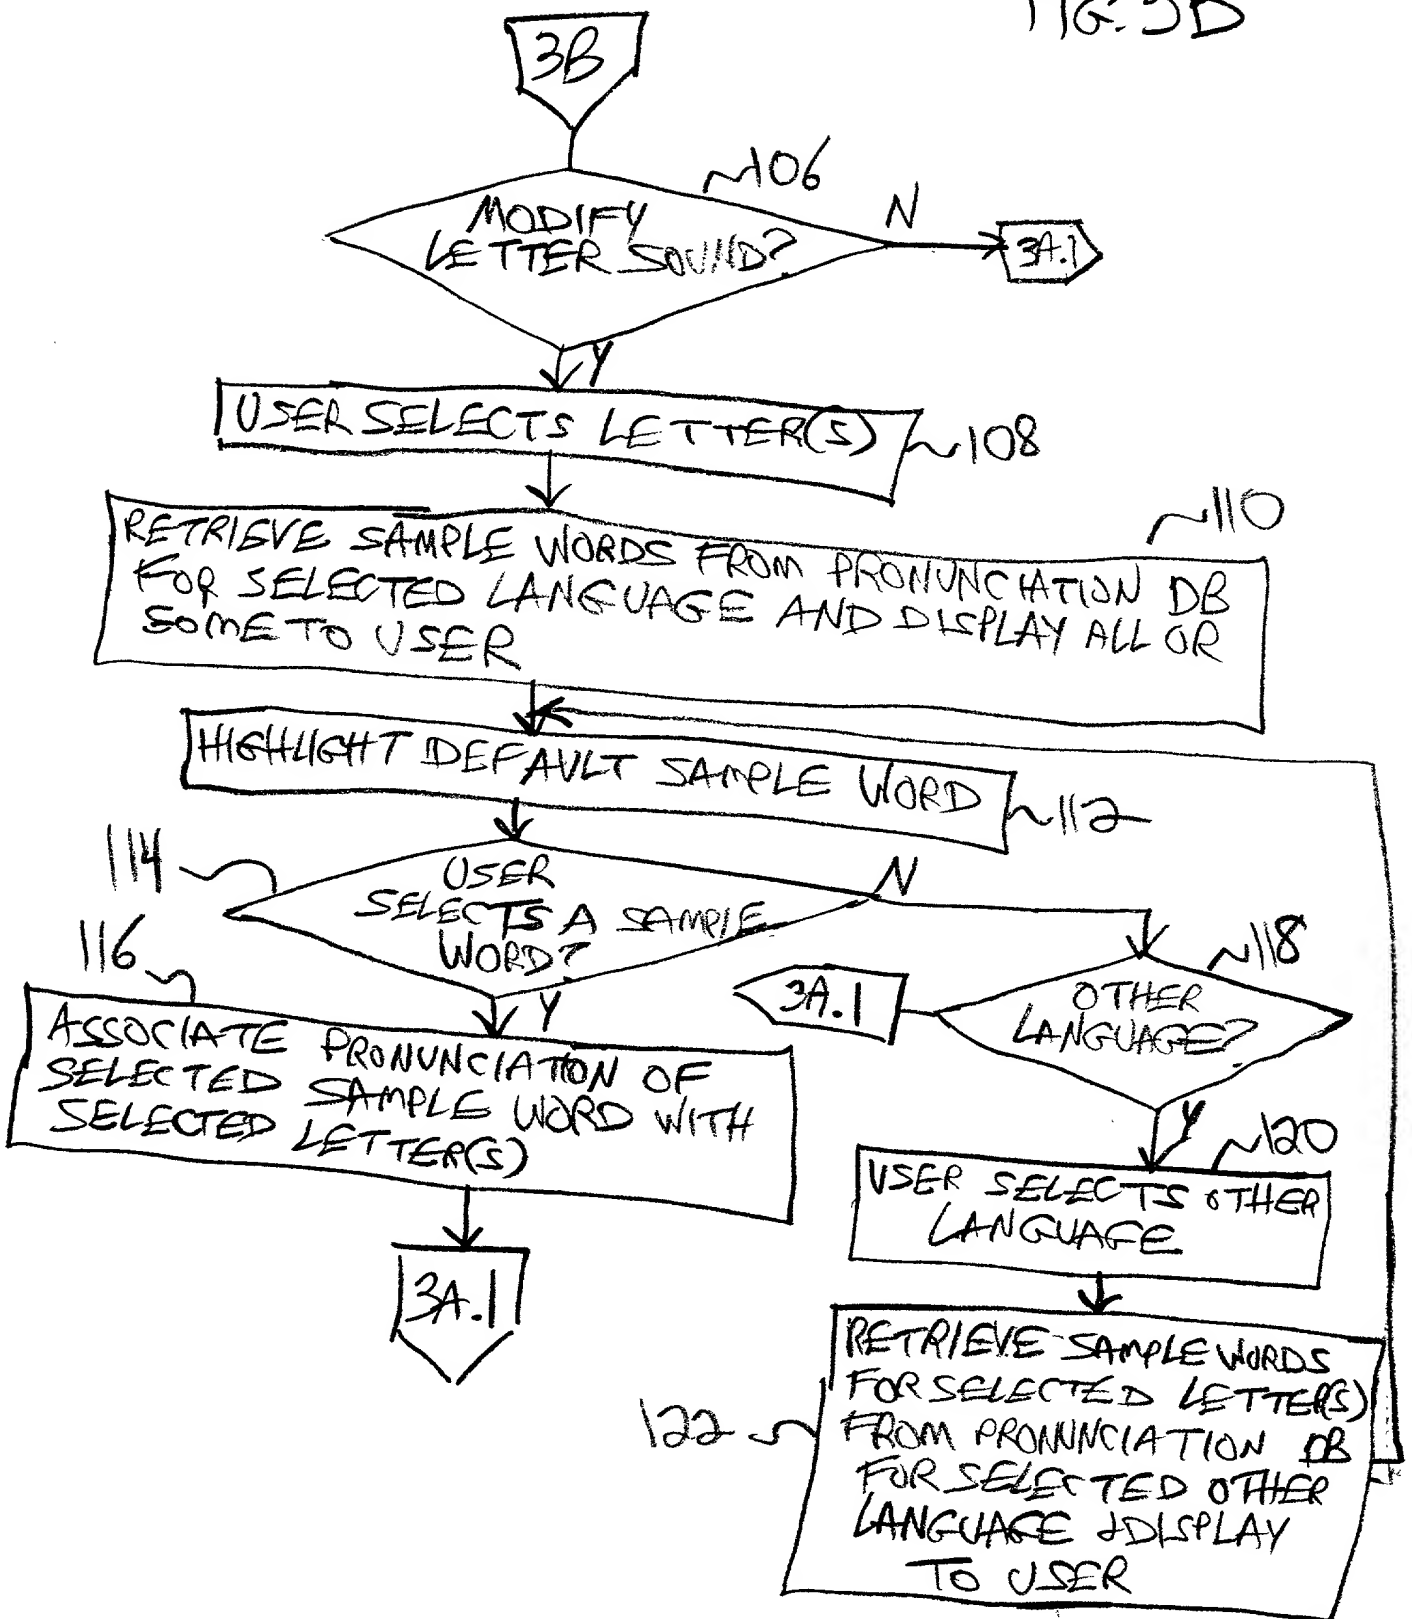 3B
106
MODIFY
LETTER SOUND?
N
3A.1
Y
USER SELECTS LETTER(S)
108
110
RETRIEVE SAMPLE WORDS FROM PRONUNCIATION DB
FOR SELECTED LANGUAGE AND DISPLAY ALL OR
SOME TO USER
HIGHLIGHT DEFAULT SAMPLE WORD
112
114
USER
SELECTS A SAMPLE
WORD?
N
116
Y
ASSOCIATE PRONUNCIATION OF
SELECTED SAMPLE WORD WITH
SELECTED LETTER(S)
3A.1
118
3A.1
OTHER
LANGUAGE?
Y
120
USER SELECTS OTHER
LANGUAGE
122
RETRIEVE SAMPLE WORDS
FOR SELECTED LETTER(S)
FROM PRONUNCIATION DB
FOR SELECTED OTHER
LANGUAGE & DISPLAY
TO USER